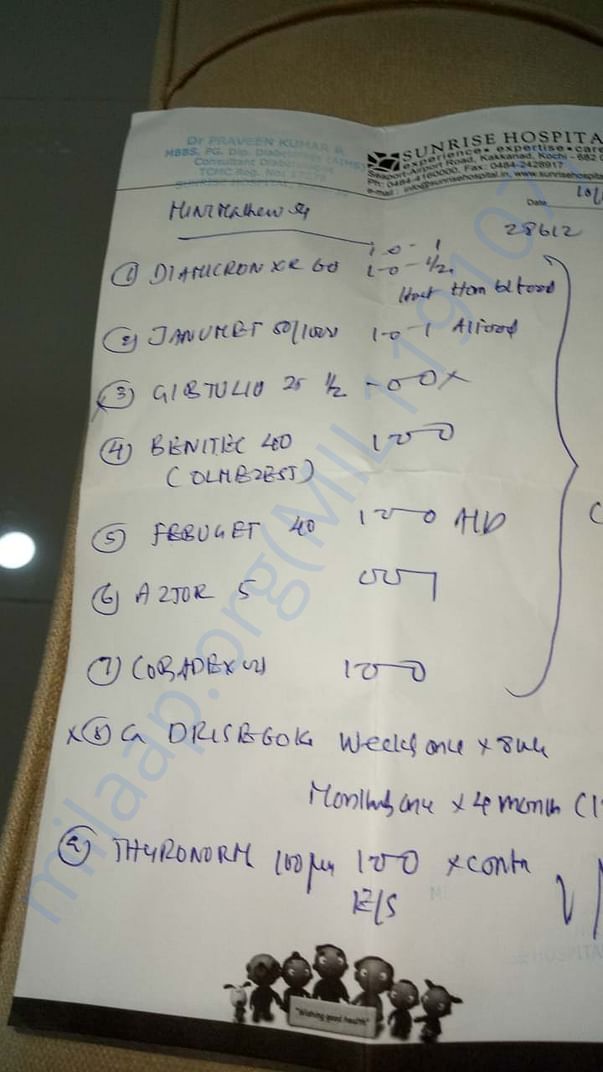 Dr PRAVEEN KUMAR R
MBBS, PG. Dip. Diabetology (AIMS)
Consultant Diabetologist
TCMC Reg. No:
SUNRISE HOSPITAL
SUNRISE HOSPITA
experience • expertise • care
Seaport-Airport Road, Kakkanad, Kochi - 682
Ph: 0484-4160000, Fax: 0484-2428917
e-mail: info@sunrisehospital.in, www.sunrisehospita
Date
28612
1-0-1
① DIAMICRON XR 60 1-0-1/2
Half Hour bf food
② JANUMET 50/1000 1-0-1 Af food
x③ GIBTULIO 25 1/2 -00x
④ BENITEC 40 100
(OLMEZEST)
⑤ FEBUGET 40 100
⑥ AZTOR 5 001
⑦ COBADEX 100
x⑧ DRISE 60K Weekly one x 8wk
Monthly one x 4 month (1
⑨ THYRONORM 100 100 x contn
E/S
"Wishing good health"
milaap.org(MIL119107